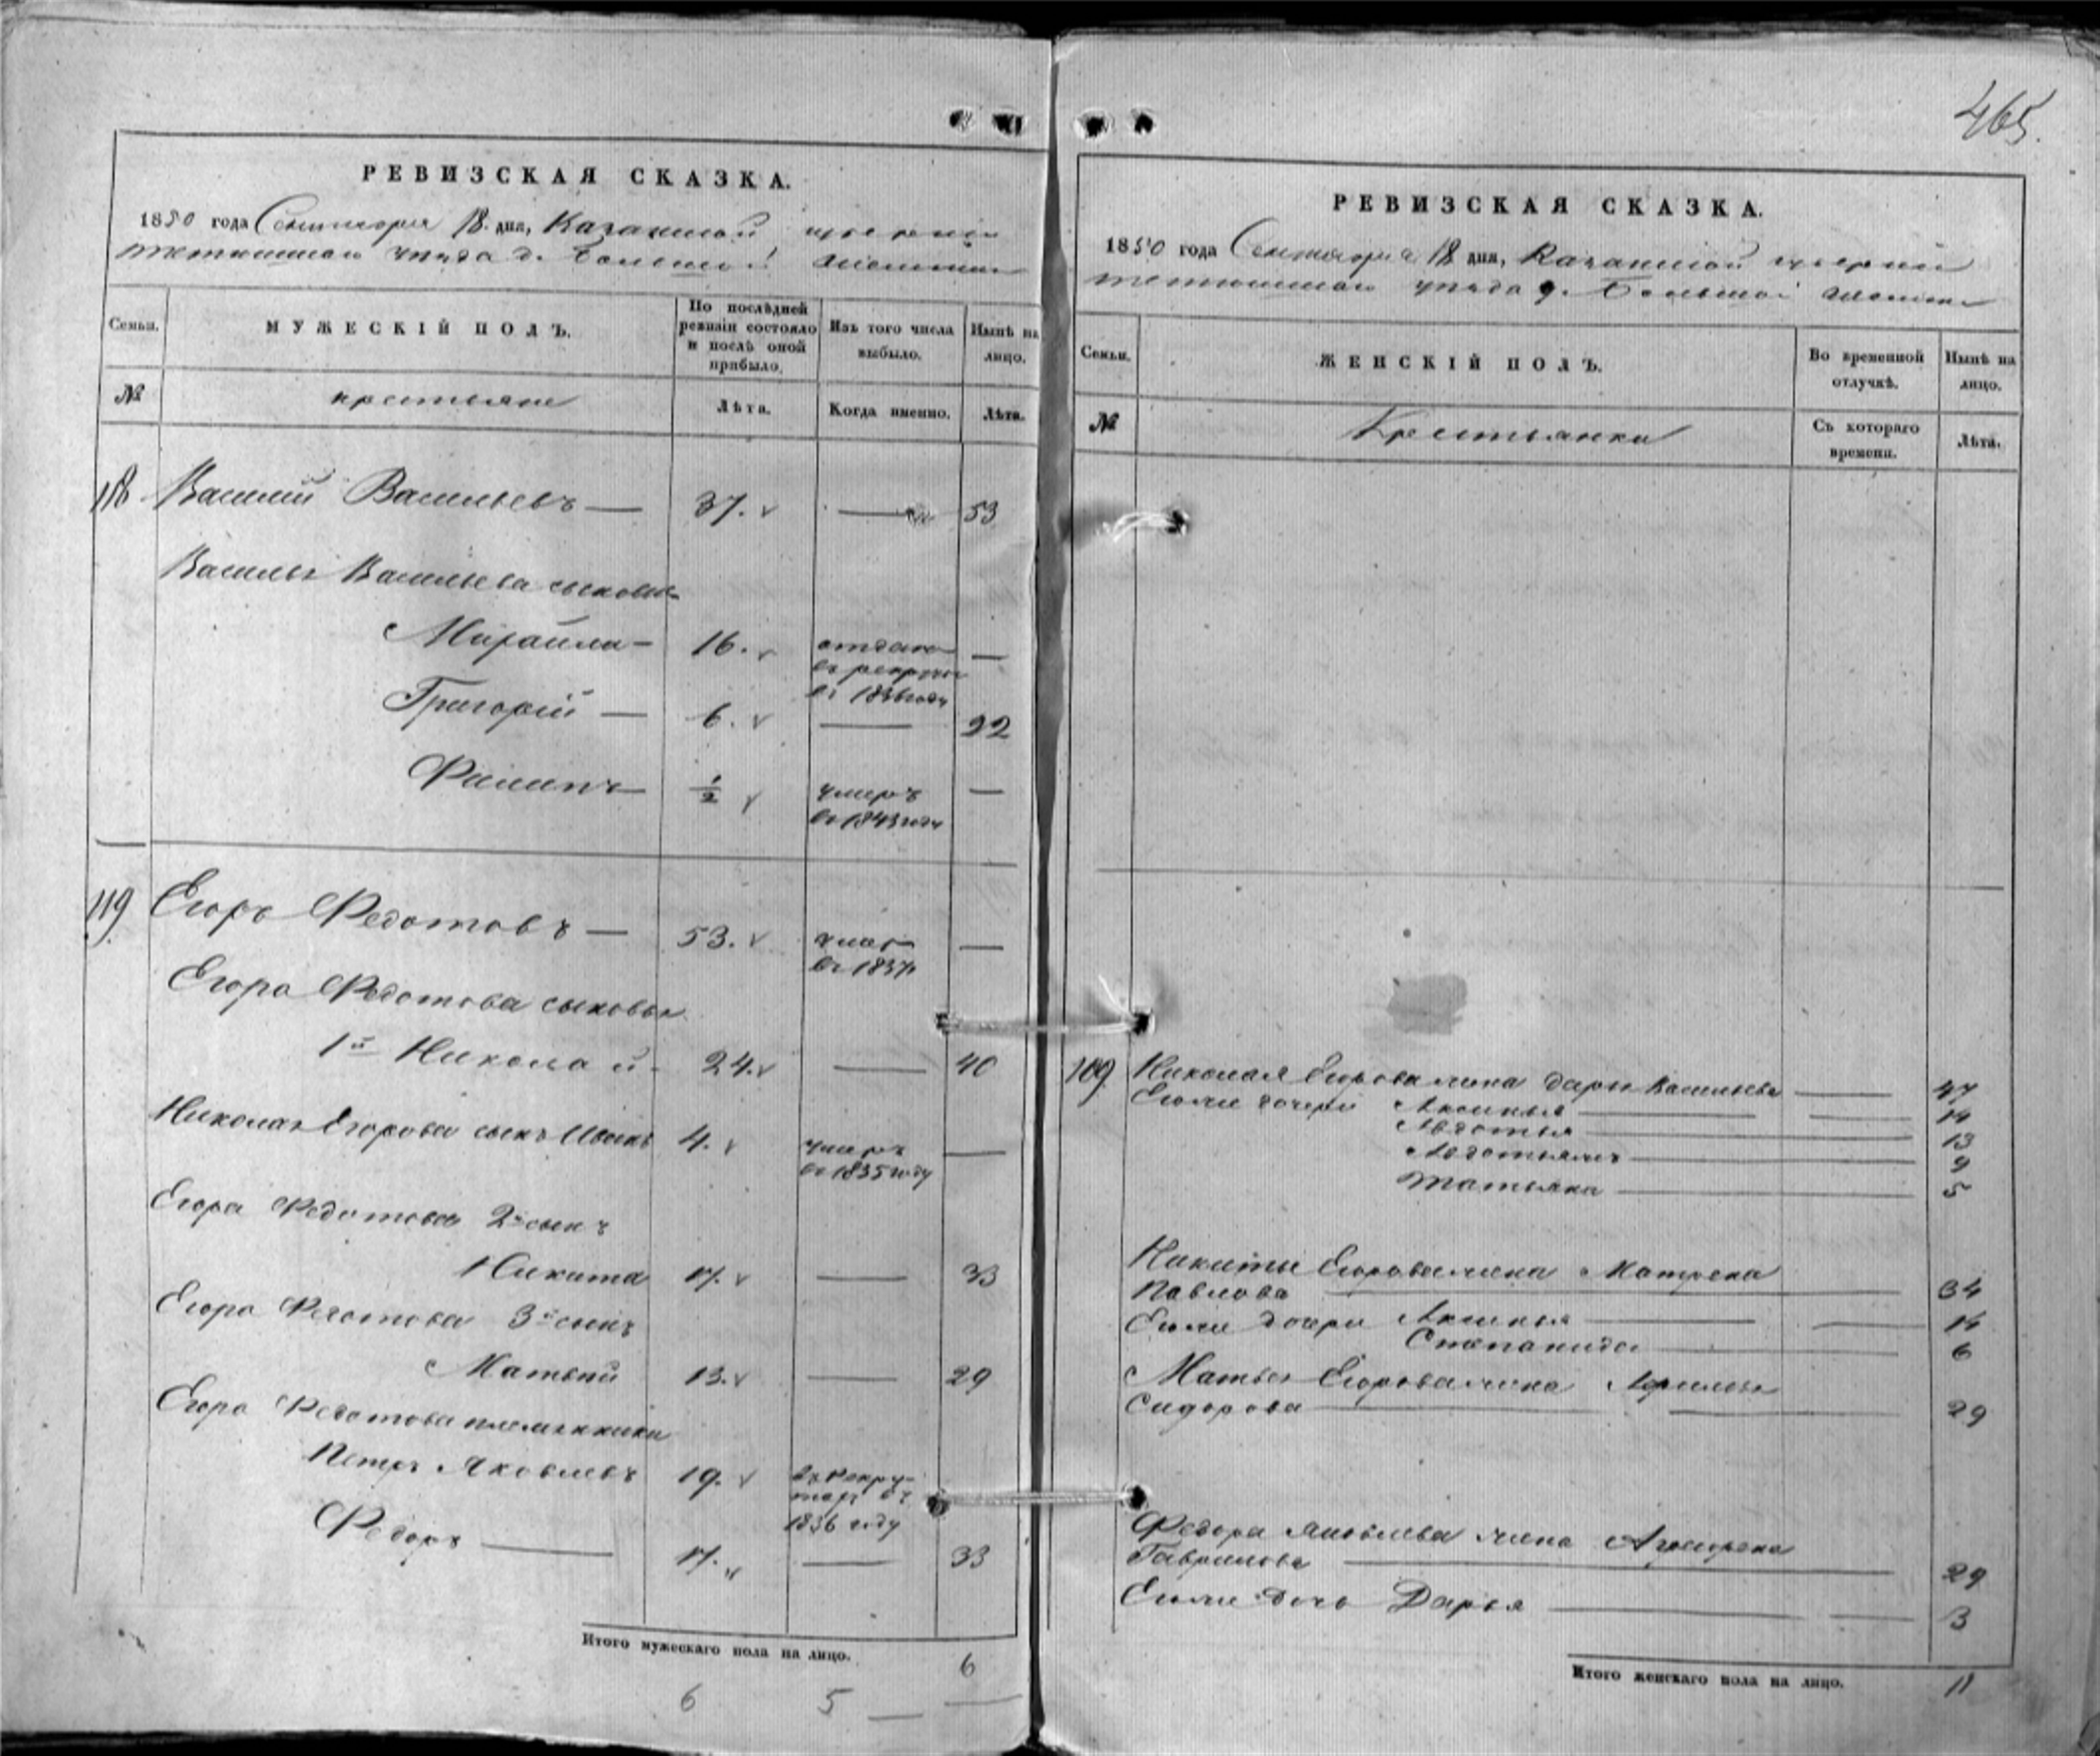 РЕВИЗСКАЯ СКАЗКА.
1850 года Сентября 18 дня, Казанской губернии
Тетюшскаго уѣзда д. Большой
Семьи. МУЖЕСКІЙ ПОЛЪ. По послѣдней ревизіи состояло и послѣ оной прибыло. Изъ того числа выбыло. Нынѣ на лицо.
№ крестьяне Лѣта. Когда именно. Лѣта.
118 Василий Васильевъ — 37. — 53
Василья Васильева сыновья
Михайла — 16. отданъ въ рекруты въ 1836 году —
Григорій — 6. — 22
Филипъ — 1/2 умеръ въ 1843 году —
119 Егоръ Федотовъ — 53. умеръ въ 1837 —
Егора Федотова сыновья
1й Николай 24. — 40
Николая Егорова сынъ Иванъ 4. умеръ въ 1835 году —
Егора Федотова 2й сынъ
Никита 17. — 33
Егора Федотова 3й сынъ
Матвѣй 13. — 29
Егора Федотова племянники
Петръ Яковлевъ 19. въ рекрутахъ въ 1836 году
Федоръ — 17. — 33
Итого мужескаго пола на лицо. 6
6 5 — —
465.
РЕВИЗСКАЯ СКАЗКА.
1850 года Сентября 18 дня, Казанской губернии
Тетюшскаго уѣзда д. Большой
Семьи. ЖЕНСКІЙ ПОЛЪ. Во временной отлучкѣ. Нынѣ на лицо.
№ Крестьянки Съ котораго времени. Лѣта.
Николая Егорова жена Дарья Васильева — 47
Егоже дочери Аксинья — — 14
Авдотья — 13
— 9
Татьяна — 5
Никиты Егорова жена Матрена
Павлова — 34
Егоже дочери Аксинья — — 14
Степанида — 6
Матвѣя Егорова жена
Сидорова — — 29
Федора Яковлева жена Аграфена
Гаврилова — 29
Егоже дочь Дарья — — 3
Итого женскаго пола на лицо. 11